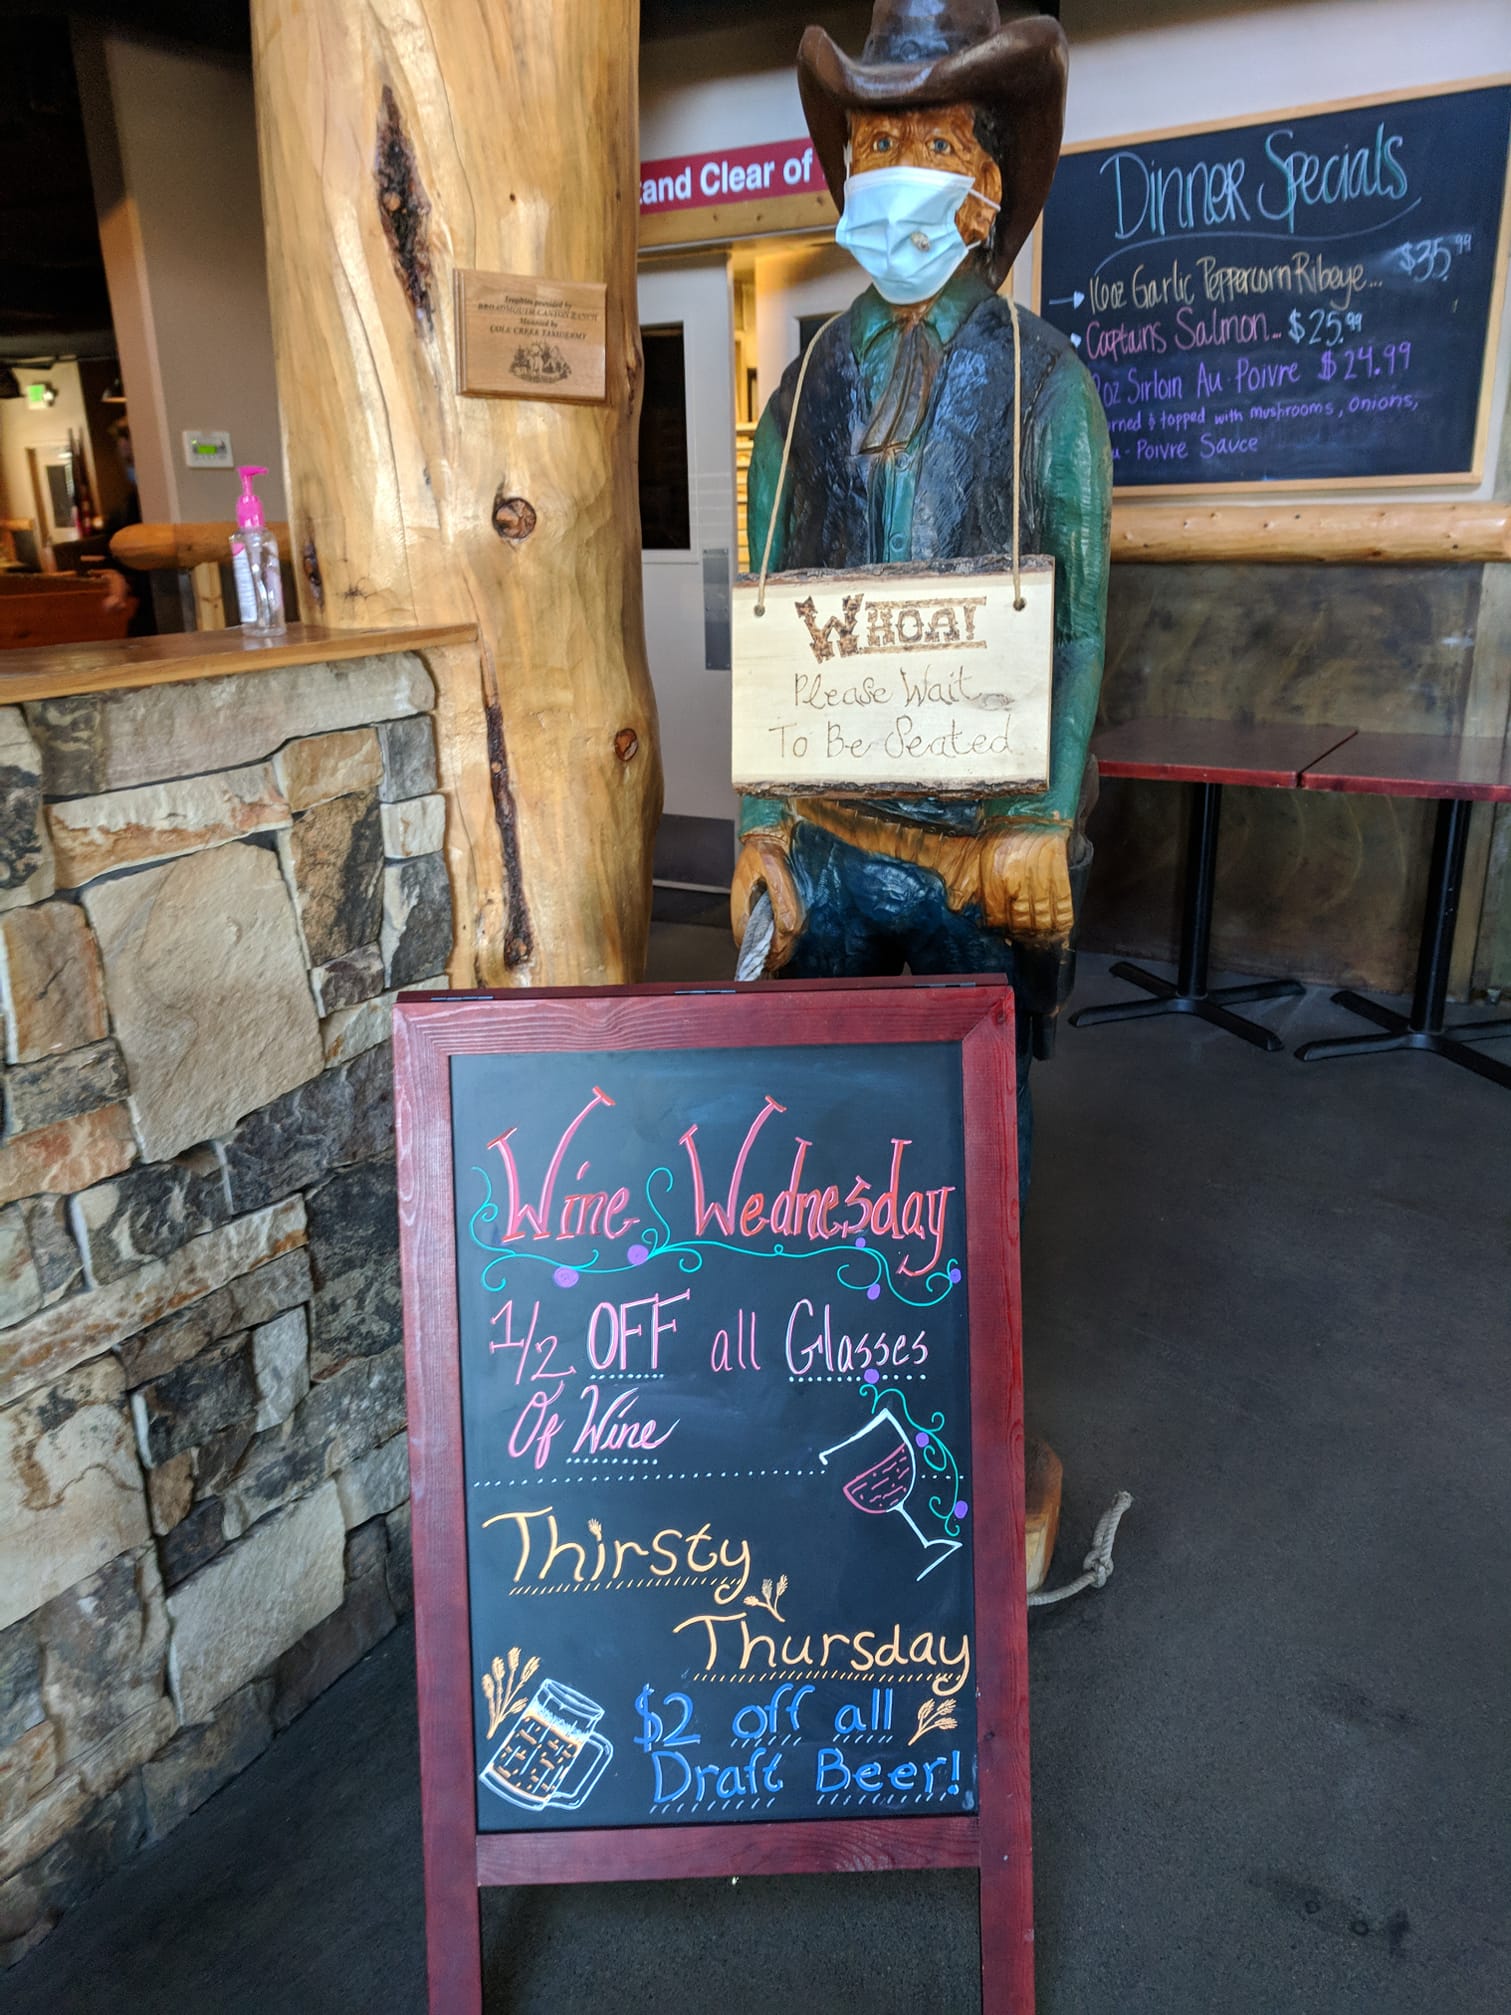 tand Clear of
Trophies provided by
BROADMOUTH CANYON RANCH
Mounted by
COLE CREEK TAXIDERMY
Dinner Specials
16oz Garlic Peppercorn Ribeye... $35.99
Captains Salmon... $25.99
oz Sirloin Au-Poivre $24.99
rned & topped with mushrooms, onions,
u-Poivre Sauce
WHOA!
Please Wait
To Be Seated
Wine Wednesday
1/2 OFF all Glasses
Of Wine
Thirsty
Thursday
$2 off all
Draft Beer!